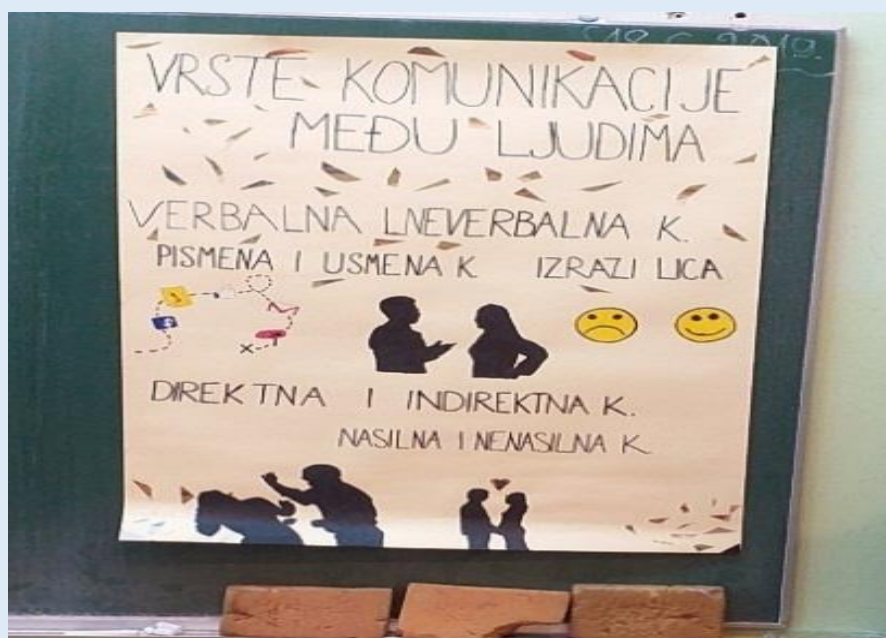 VRSTE KOMUNIKACIJE
MEĐU LJUDIMA
VERBALNA I NEVERBALNA K.
PISMENA I USMENA K IZRAZI LICA
DIREKTNA I INDIREKTNA K.
NASILNA I NENASILNA K.